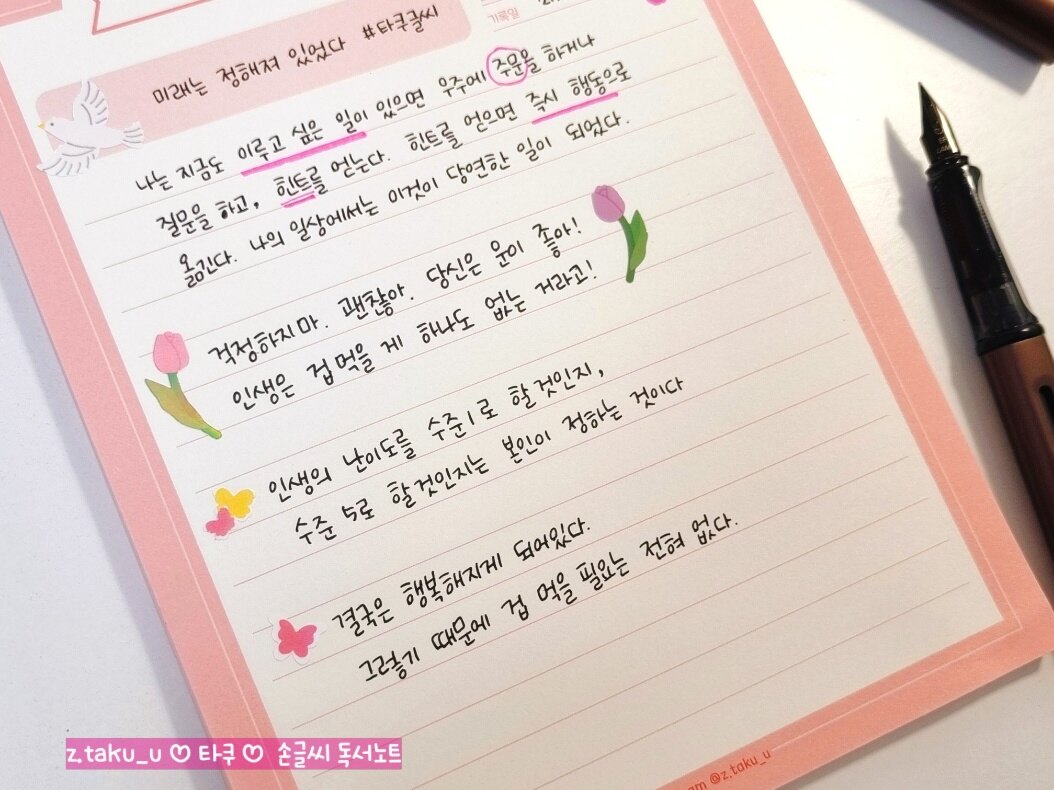 기록일
미래는 정해져 있었다 #타쿠글씨
나는 지금도 이루고 싶은 일이 있으면 우주에 주문을 하거나
질문을 하고, 힌트를 얻는다. 힌트를 얻으면 즉시 행동으로
옮긴다. 나의 일상에서는 이것이 당연한 일이 되었다.
걱정하지마. 괜찮아. 당신은 운이 좋아!
인생은 겁먹을 게 하나도 없는 거라고!
인생의 난이도를 수준1로 할것인지,
수준 5로 할것인지는 본인이 정하는 것이다
결국은 행복해지게 되어있다.
그렇기 때문에 겁 먹을 필요는 전혀 없다.
z.taku_u ♡ 타쿠 ♡ 손글씨 독서노트
am @z.taku_u